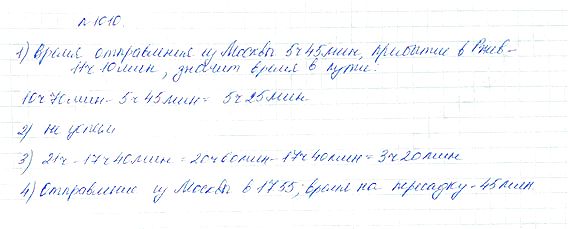 № 1010.
1) Время отправления из Москвы 5ч 45мин, прибытие в Ржев -
11ч 10мин, значит время в пути:
10ч 70мин - 5ч 45мин = 5ч 25мин
2) не успеем
3) 21ч - 17ч 40мин = 20ч 60мин - 17ч 40мин = 3ч 20мин
4) Отправление из Москвы в 17 55; время на пересадку - 45мин